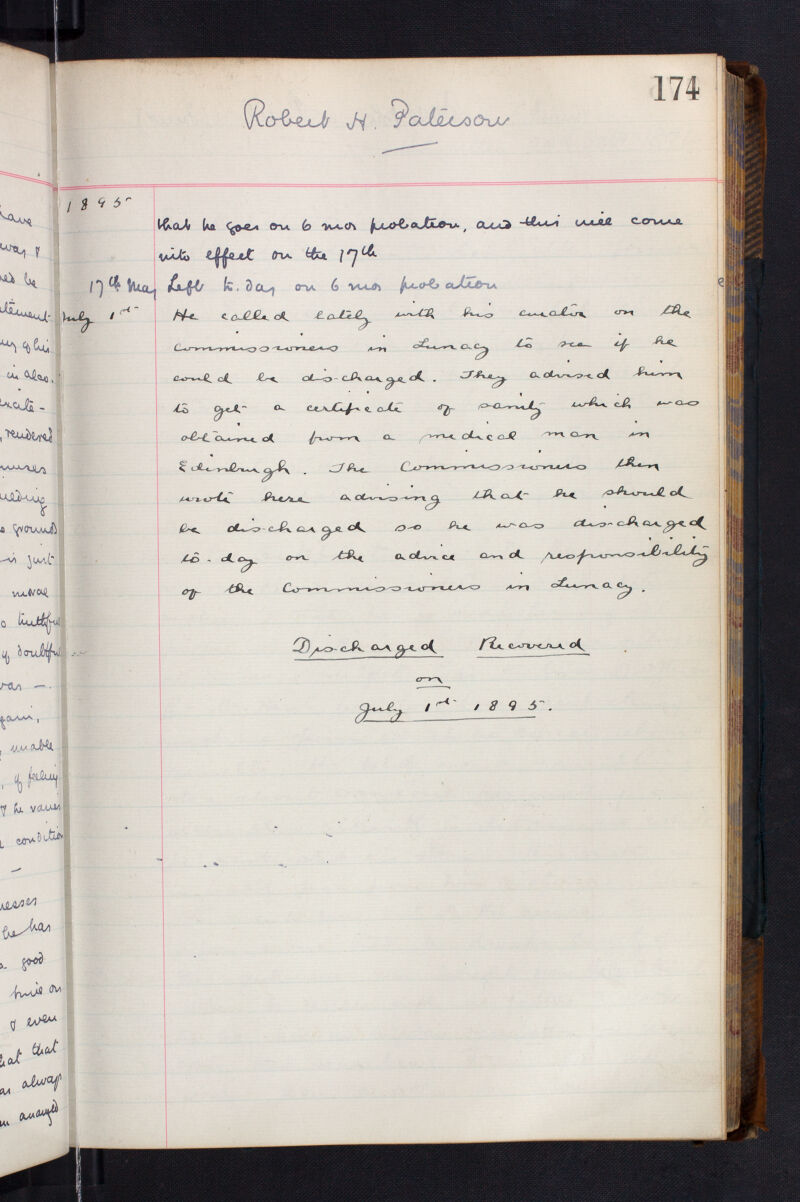 174
Robert H. Paterson
1895
that he goes on 6 mos probation, and this will come
into effect on the 17th
17th May Left to.day on 6 mos probation
July 1st He called lately with his curator on the
Commissioners in Lunacy to see if he
could be discharged. They advised him
to get a certificate of sanity which was
obtained from a medical man in
Edinburgh. The Commissioners then
wrote here advising that he should
be discharged so he was discharged
to.day on the advice and responsibility
of the Commissioners in Lunacy.
Discharged Recovered
on
July 1st 1895.
have
was &
be
his
in also.
excite-
rendered
nurses
grounds
is just
moral
truthful
of doubtful
was —.
again,
unable
of feeling
& he varies
condition
—
he has
a good
twice on
& even
that that
as always
arranged